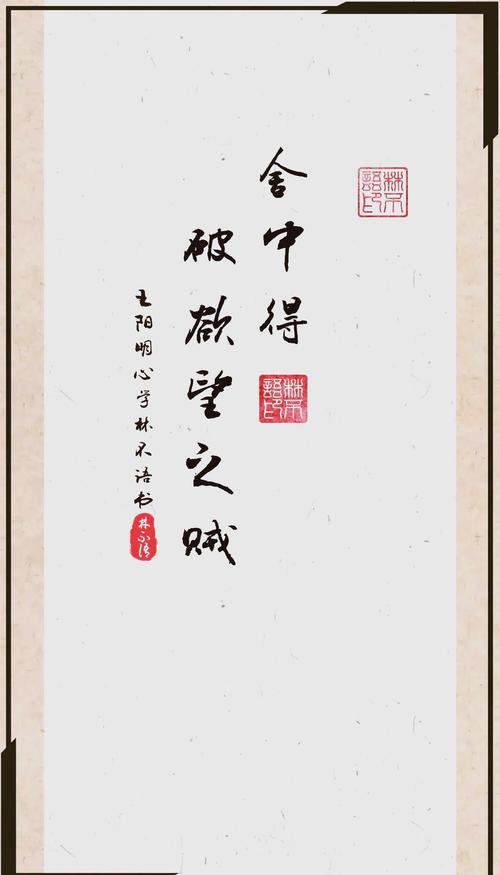 林不語印
舍中得
林不語印
破欲望之贼
王阳明心学林不语书
林不语